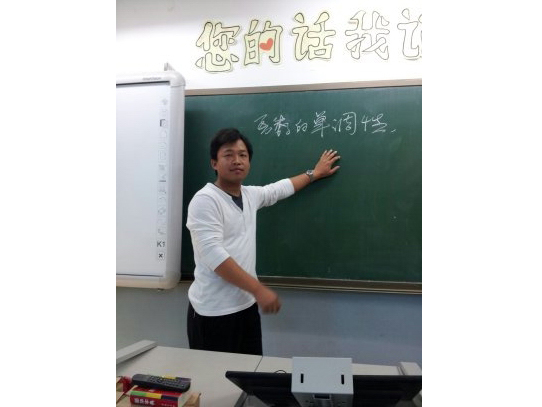 您的话我
函数的单调性
K1